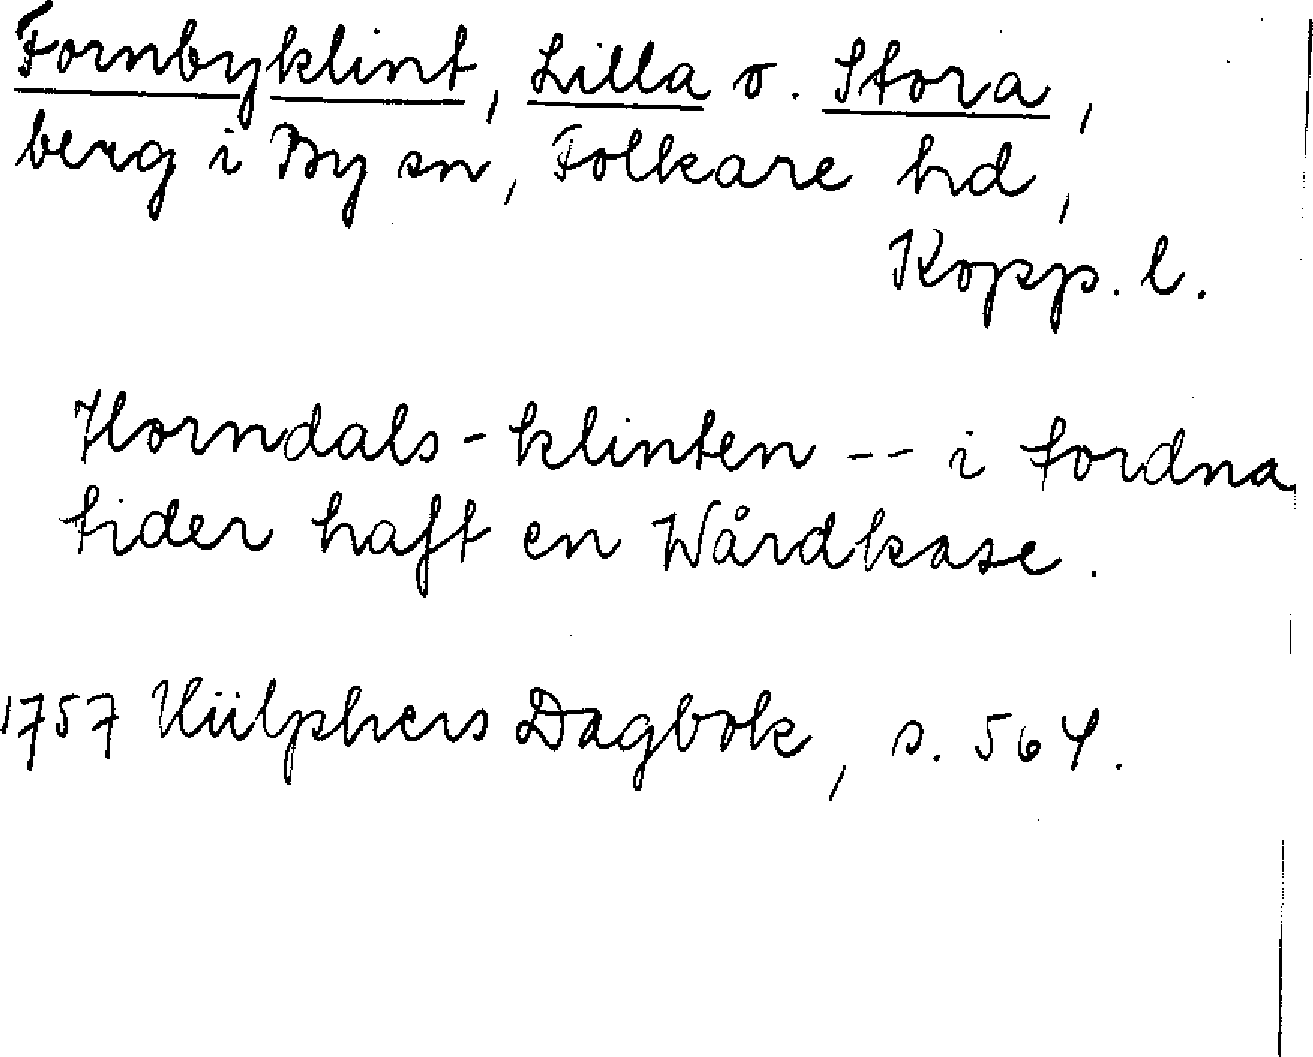 Fornbyklint, Lilla o. Stora,
berg i By sn, Folkare hd,
Kopp. l.
Horndals-klinten -- i fordna
tider haft en Wårdkase.
1757 Hülphers Dagbok, s. 564.